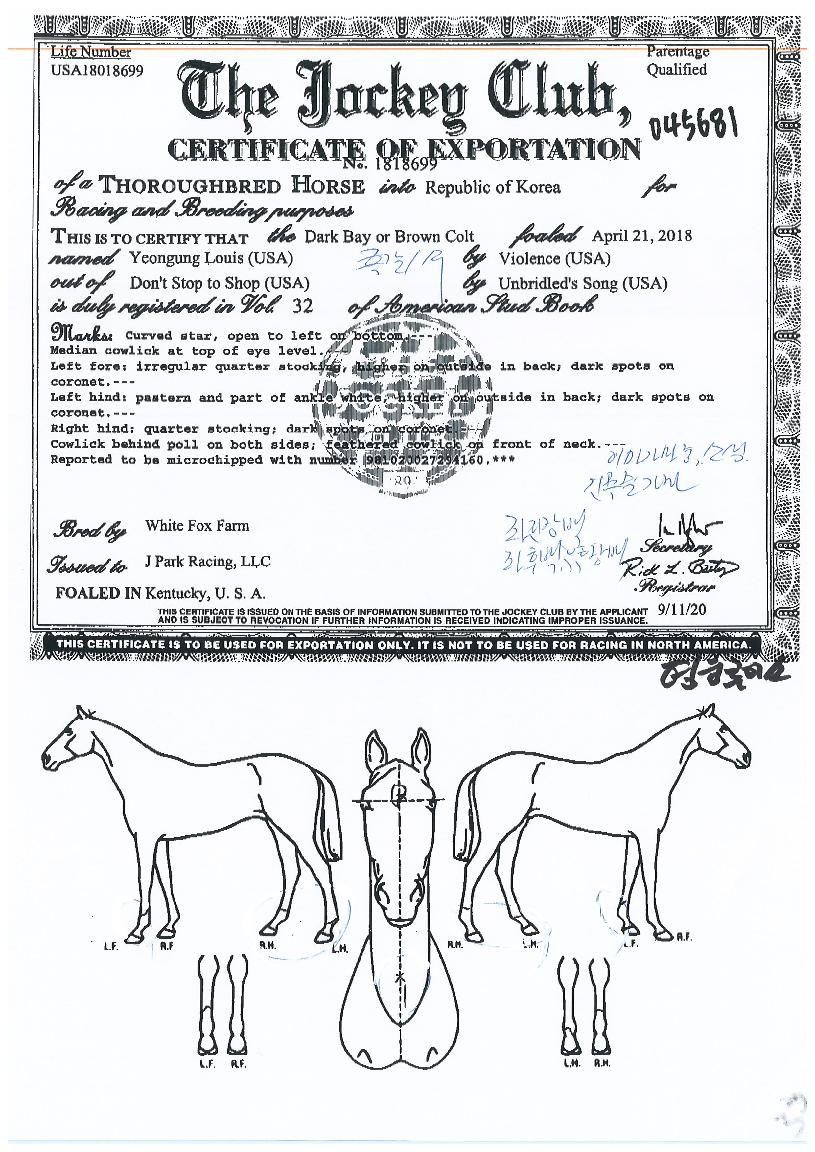 Life Number
USA18018699
Parentage
Qualified
The Jockey Club,
045681
CERTIFICATE OF EXPORTATION
No. 1818699
of a THOROUGHBRED HORSE into Republic of Korea for
Racing and Breeding purposes
THIS IS TO CERTIFY THAT the Dark Bay or Brown Colt foaled April 21, 2018
named Yeongung Louis (USA) by Violence (USA)
out of Don't Stop to Shop (USA) by Unbridled's Song (USA)
is duly registered in Vol. 32 of American Stud Book
Marks: Curved star, open to left on bottom.---
Median cowlick at top of eye level.---
Left fore: irregular quarter stocking, higher on outside in back; dark spots on
coronet.---
Left hind: pastern and part of ankle white, higher on outside in back; dark spots on
coronet.---
Right hind: quarter stocking; dark spots on coronet.---
Cowlick behind poll on both sides; feathered cowlick on front of neck.---
Reported to be microchipped with number 981020027294160.***
20
Bred by White Fox Farm
Secretary
Issued to J Park Racing, LLC
Rick L. Bailey
Registrar
FOALED IN Kentucky, U. S. A.
THIS CERTIFICATE IS ISSUED ON THE BASIS OF INFORMATION SUBMITTED TO THE JOCKEY CLUB BY THE APPLICANT
AND IS SUBJECT TO REVOCATION IF FURTHER INFORMATION IS RECEIVED INDICATING IMPROPER ISSUANCE.
9/11/20
THIS CERTIFICATE IS TO BE USED FOR EXPORTATION ONLY. IT IS NOT TO BE USED FOR RACING IN NORTH AMERICA.
L.F. R.F R.H. L.H. R.H. L.H. L.F. R.F.
L.F. R.F. L.H. R.H.